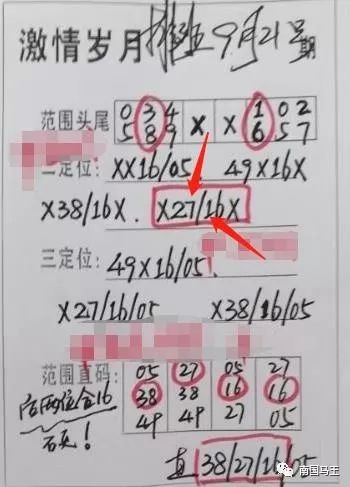 激情岁月 排五 9月21号期
范围头尾 034 X X 102
589 657
二定位: XX16/05 49X16X
X38/16X. X27/16X
三定位: 49X16/05.
X27/16/05 X38/16/05
范围直码: 05 27 05 27
38 38 16 16
49 49 27 05
后两位合16
直 38/27/16/05
南国马王